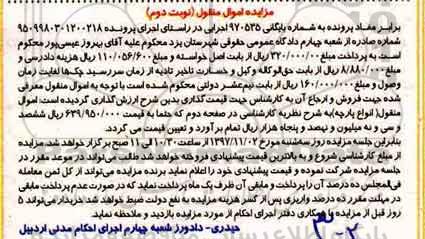 مزایده اموال منقول (نوبت دوم)
برابر مفاد پرونده به شماره بایگانی ۹۷۰۵۳۵ اجرایی در راستای اجرای پرونده ۹۵۰۹۹۸۰۳۰۱۲۰۰۲۱۸
شماره صادره از شعبه چهارم دادگاه عمومی حقوقی شهرستان یزد محکوم علیه آقای بهروز عیسی‌پور محکوم
است به پرداخت مبلغ ۳۲۰/۰۰۰/۰۰۰ ریال از بابت اصل خواسته و مبلغ ۱۱۰/۰۵۶/۶۰۰ ریال هزینه دادرسی و
مبلغ ۸/۸۸۰/۰۰۰ ریال از بابت حق‌الوکاله وکیل و خسارت تاخیر تادیه از زمان سررسید چک‌ها لغایت زمان
وصول و مبلغ ۱۶۰/۰۰۰/۰۰۰ ریال از بابت نیم‌عشر دولتی محکوم شده است با توجه به اموال منقول معرفی
شده جهت فروش و ارجاع آن به کارشناسی جهت قیمت گذاری بدین شرح ارزش گذاری گردیده است: اموال
منقول( انواع پارچه)به شرح نظریه کارشناسی در صفحه دوم که جمعا به قیمت ۶۳۹/۹۵۰/۰۰۰ ششصد
و سی و نه میلیون و نهصد و پنجاه هزار ریال تمام برآورد و تعیین قیمت می گردد.
بنابراین جلسه مزایده روز سه‌شنبه مورخ ۱۳۹۷/۱۱/۰۲ از ساعت ۱۰/۳۰ الی ۱۱ صبح برگزار خواهد شد. مزایده
از مبلغ کارشناسی شروع و به بالاترین قیمت پیشنهادی فروخته خواهد شد طالب می‌تواند در موعد مقرر در
جلسه مزایده شرکت نموده و قیمت پیشنهادی خود را اعلام نماید برنده مزایده می‌تواند از کل ثمن معامله
فی‌المجلس ده درصد آن را پرداخت و مابقی آن ظرف یک ماه پرداخت نماید که در صورت عدم پرداخت مابقی
در مهلت مقرر ده درصد واریزی پس از کسر هزینه مزایده به نفع دولت ضبط خواهد شد.خریدار می‌تواند ۵
روز قبل از مزایده با همکاری دفتر اجرای احکام از مورد مزایده بازدید و ملاحظه نماید.
حیدری- دادورز شعبه چهارم اجرای احکام مدنی اردبیل